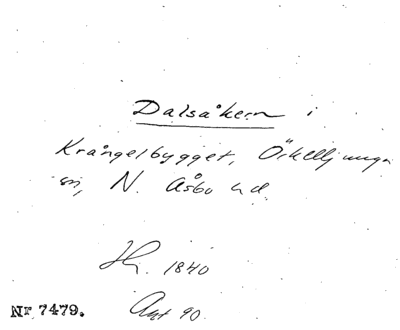 Dalsåkern i
Krångelbygget, Örkelljunga
sn, N. Åsbo hd.
Hr. 1840
Ant 90.
Nr 7479.